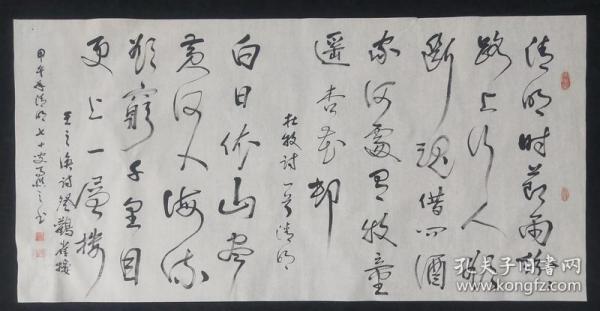 清明时節雨纷纷
路上行人欲
断魂借问酒
家何處有牧童
遥杏花邨
杜牧詩一首清明
白日依山尽
黄河入海流
欲窮千里目
更上一层楼
王之涣詩登鸛雀楼
甲午春清明七十叟
孔夫子旧书网
www.kongfz.com